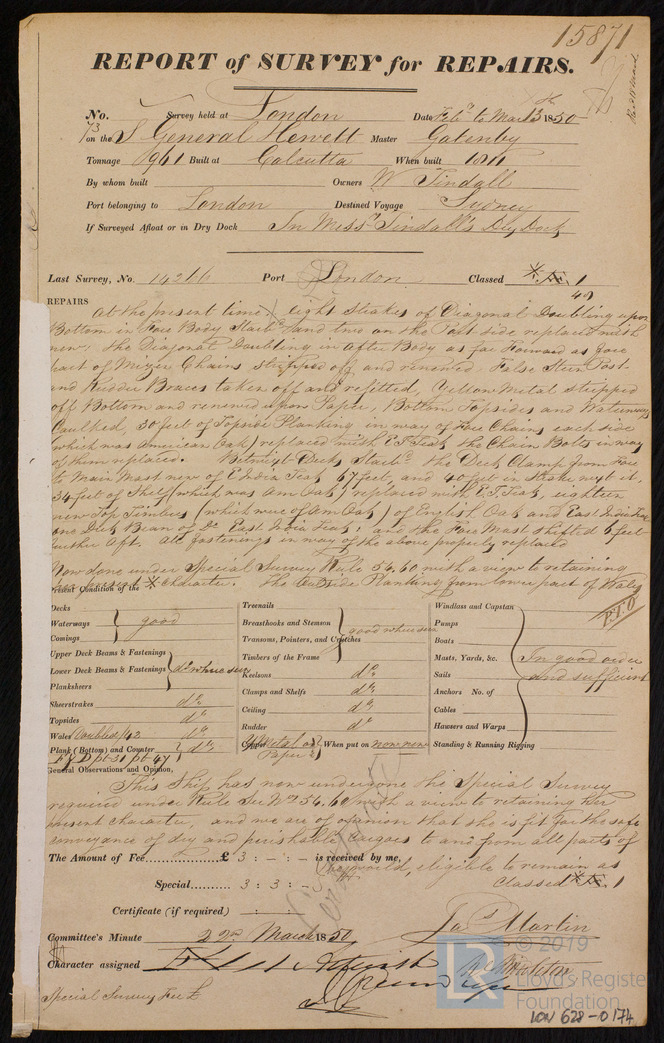 15871
REPORT of SURVEY for REPAIRS.
No. 73 Survey held at London Date Feb. to March 13th 1850
on the S General Hewett Master Gatenby
Tonnage 961 Built at Calcutta When built 1811
By whom built Owners W Tindall
Port belonging to London Destined Voyage Sydney
If Surveyed Afloat or in Dry Dock In Messrs Tindall's Dry Dock
Last Survey, No. 14266 Port London Classed Æ 1
49
REPAIRS At the present time eight strakes of Diagonal Doubling upon
Bottom in Fore Body Starbd and two on the Port side replaced with
new: the Diagonal Doubling in After Body as far Forward as fore
part of Mizen Chains stripped off and renewed False Stern Post
and Rudder Braces taken off and refitted, Yellow Metal stripped
off Bottom and renewed upon Paper, Bottom Topsides and Waterways
Caulked, 30 feet of Topside Planking in way of Fore Chains each side
which was American Oak replaced with E I Teak, the Chain Bolts in way
of them replaced. Betwixt Decks Starbd the Deck Clamp from Fore
to Main Mast new of E India Teak 67 feet, and 40 feet in strake next it.
34 feet of Shelf (which was Am Oak) replaced with E.I. Teak, eighteen
new Top Timbers (which were of Am Oak) of English Oak and East India Teak
one Deck Beam of Do East India Teak: and the Fore Mast shifted 6 feet
further Aft, all fastenings in way of the above properly replaced
Now done under Special Survey Rule 54, 60 with a view to retaining
her present Æ Character. The Outside Planking from lower part of Wales
P.T.O
Present Condition of the
Decks
Waterways good
Comings
Upper Deck Beams & Fastenings
Lower Deck Beams & Fastenings do where seen
Planksheers
Sheerstrakes do
Topsides do
Wales Doubled/42 do
Plank (Bottom) and Counter do
F Y D pt 31 pt 47
Treenails
Breasthooks and Stemson good where seen
Transoms, Pointers, and Crutches
Timbers of the Frame
Keelsons do
Clamps and Shelfs do
Ceiling do
Rudder do
Copper Y Metal on Paper When put on now new
Windlass and Capstan
Pumps
Boats
Masts, Yards, &c. In good order
Sails and sufficient
Anchors No. of
Cables
Hawsers and Warps
Standing & Running Rigging
General Observations and Opinion,
This Ship has now undergone the Special Survey
required under Rule Sec No 54, 60 with a view to retaining her
present character, and we are of opinion that she is fit for the safe
conveyance of dry and perishable cargoes to and from all parts of
The Amount of Fee £ 3 : - : - is received by me,
the world, eligible to remain as
Special 3 : 3 : - Classed Æ 1
Certificate (if required) : :
Committee's Minute 22nd March 1850
Jas Martin
Character assigned
Special Survey Fee £
© 2019
Lloyd's Register
Foundation
LON 628-0174